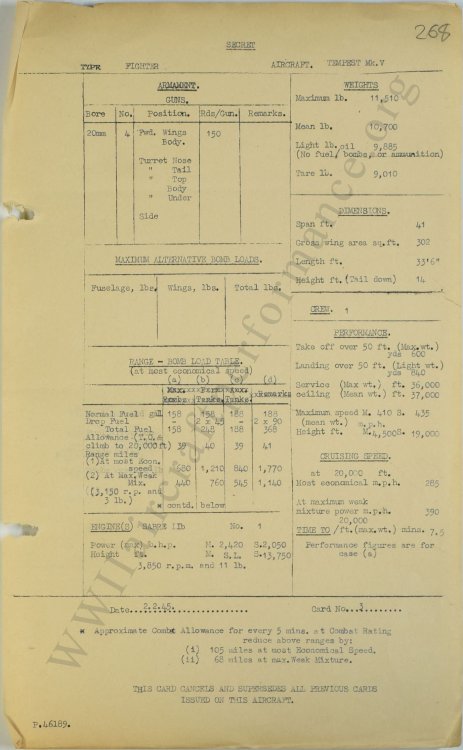 268
SECRET
TYPE FIGHTER AIRCRAFT. TEMPEST MK.V
ARMAMENT.
GUNS.
Bore No. Position. Rds/Gun. Remarks.
20mm 4 Fwd. Wings 150
Body.
Turret Nose
" Tail
" Top
Body
" Under
Side
MAXIMUM ALTERNATIVE BOMB LOADS.
Fuselage, lbs. Wings, lbs. Total lbs.
RANGE - BOMB LOAD TABLE.
(at most economical speed)
(a) (b) (c) (d)
Max. Max.
Bombs Tanks. Tanks. Remarks
Normal Fuel gal 158 158 188 188
Drop Fuel - 2 x 45 - 2 x 90
Total Fuel 158 248 188 368
Allowance (T.O.&
climb to 20,000ft) 39 40 39 41
Range miles
(1) At most Econ.
speed 680 1,210 840 1,770
(2) At Max.Weak
Mix. 440 760 545 1,140
(3,150 r.p. and
3 lb.)
* contd. below
ENGINE(S) SABRE IIb No. 1
Power (max) b.h.p. M. 2,420 S.2,050
Height ft. M. S.L. S.13,750
3,850 r.p.m. and 11 lb.
WEIGHTS
Maximum lb. 11,510
Mean lb. 10,700
Light lb. oil 9,885
(No fuel, bombs, or ammunition)
Tare lb. 9,010
DIMENSIONS.
Span ft. 41
Gross wing area sq.ft. 302
Length ft. 33'6"
Height ft. (Tail down) 14
CREW. 1
PERFORMANCE.
Take off over 50 ft. (Max.wt.)
yds 600
Landing over 50 ft. (Light wt.)
yds 840
Service (Max wt.) ft. 36,000
ceiling (Mean wt.) ft. 37,000
Maximum speed M. 410 S. 435
(mean wt.) m.p.h.
Height ft. M. 4,500 S. 19,000
CRUISING SPEED.
at 20,000 ft.
Most economical m.p.h. 285
At maximum weak
mixture power m.p.h. 390
20,000
TIME TO /ft.(max.wt.) mins. 7.5
Performance figures are for
case (a)
Date. 2.2.45. Card No. 3
* Approximate Combt Allowance for every 5 mins. at Combat Rating
reduce above ranges by:
(i) 105 miles at most Economical Speed.
(ii) 68 miles at max.Weak Mixture.
THIS CARD CANCELS AND SUPERSEDES ALL PREVIOUS CARDS
ISSUED ON THIS AIRCRAFT.
P.46189.
www.wwiiaircraftperformance.org